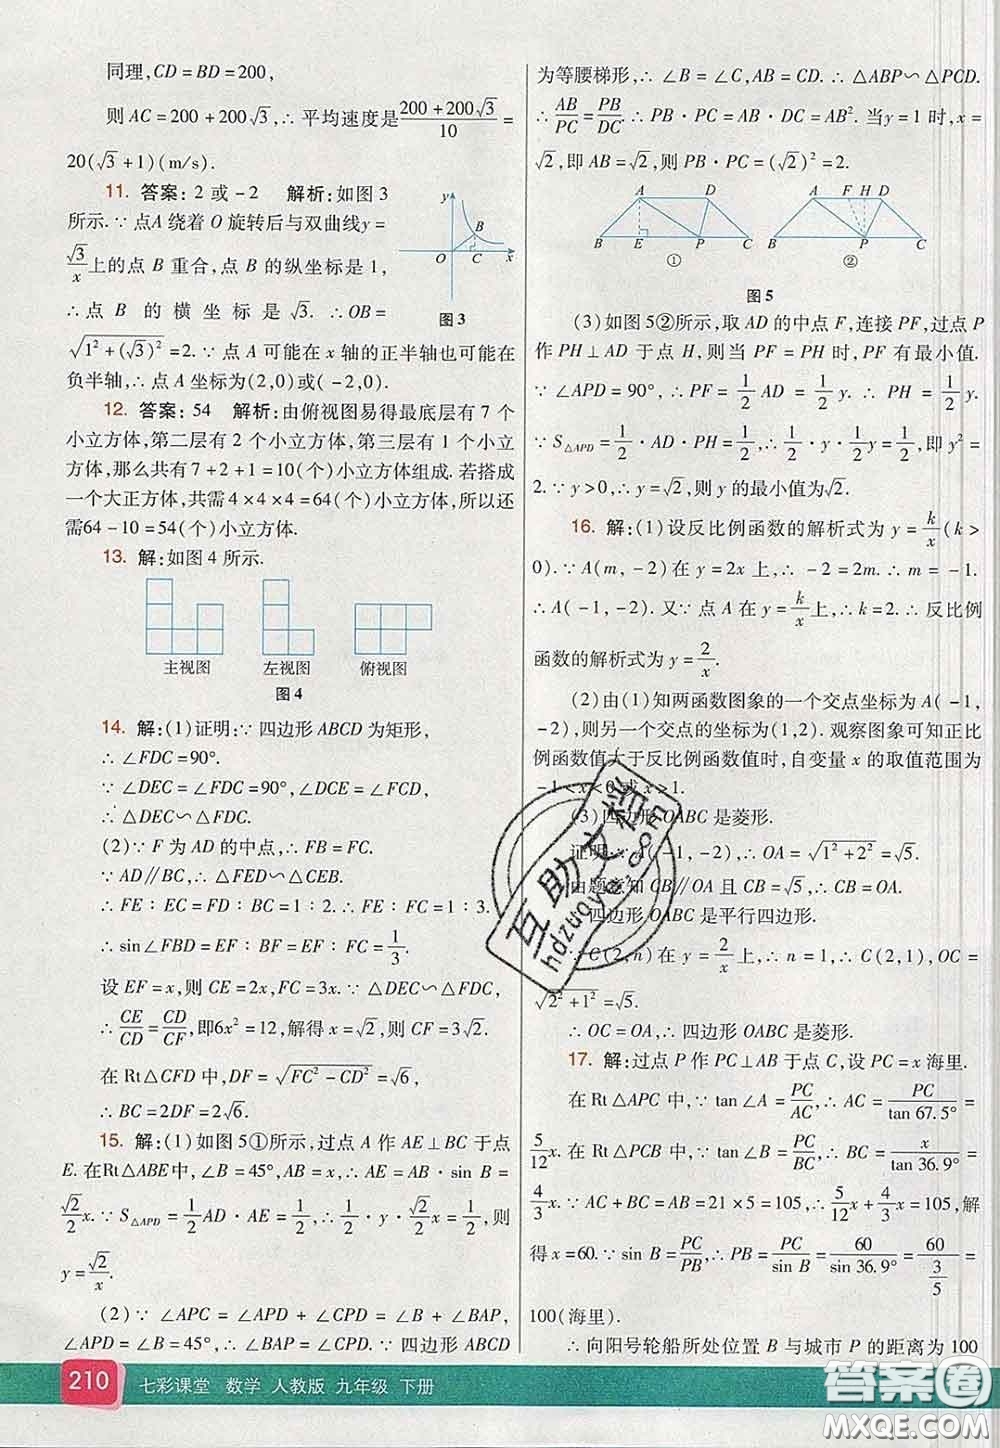 同理,CD=BD=200,
则 AC=200+200√3,∴ 平均速度是(200+200√3)/10=
20(√3+1)(m/s).
11. 答案:2 或-2 解析:如图 3
所示.∵ 点A 绕着 O 旋转后与双曲线y=
√3/x上的点 B 重合,点 B 的纵坐标是 1,
∴点 B 的横坐标是√3. ∴OB=
√(1²+(√3)²)=2.∵ 点 A 可能在 x 轴的正半轴也可能在
负半轴,∴ 点 A 坐标为(2,0)或(-2,0).
y
B
O C x
图 3
12. 答案:54 解析:由俯视图易得最底层有 7 个
小立方体,第二层有 2 个小立方体,第三层有 1 个小立
方体,那么共有7+2+1=10(个)小立方体组成. 若搭成
一个大正方体,共需4×4×4=64(个)小立方体,所以还
需64-10=54(个)小立方体.
13. 解:如图 4 所示.
主视图 左视图 俯视图
图 4
14. 解:(1)证明:∵ 四边形 ABCD 为矩形,
∴ ∠FDC=90°.
∵ ∠DEC=∠FDC=90°,∠DCE=∠FCD,
∴ △DEC∽△FDC.
(2)∵ F 为 AD 的中点,∴ FB=FC.
∵ AD∥BC,∴ △FED∽△CEB.
∴ FE∶EC=FD∶BC=1∶2.∴ FE∶FC=1∶3.
∴ sin∠FBD=EF∶BF=EF∶FC=1/3.
设 EF=x,则 CE=2x,FC=3x.∵ △DEC∽△FDC,
∴CE/CD=CD/CF,即6x²=12,解得 x=√2,则 CF=3√2.
在 Rt△CFD 中,DF=√(FC²-CD²)=√6,
∴ BC=2DF=2√6.
15. 解:(1)如图 5①所示,过点 A 作 AE⊥BC 于点
E. 在Rt△ABE中,∵ ∠B=45°,AB=x,∴ AE=AB·sin B=
√2/2x.∵ S△APD=1/2AD·AE=1,∴ 1/2·y·√2/2x=1,则
y=√2/x.
(2)∵ ∠APC=∠APD+∠CPD=∠B+∠BAP,
∠APD=∠B=45°,∴ ∠BAP=∠CPD.∵ 四边形 ABCD
为等腰梯形,∴ ∠B=∠C,AB=CD.∴ △ABP∽△PCD.
∴ AB/PC=PB/DC.∴ PB·PC=AB·DC=AB². 当y=1时,x=
√2,即 AB=√2,则 PB·PC=(√2)²=2.
A D
B E P C
①
A F H D
B P C
②
图 5
(3)如图 5②所示,取 AD 的中点 F,连接 PF,过点 P
作 PH⊥AD 于点 H,则当 PF=PH 时,PF 有最小值.
∵ ∠APD=90°,∴ PF=1/2AD=1/2y.∴ PH=1/2y.
∵ S△APD=1/2·AD·PH=1,∴1/2·y·1/2y=1,即 y²=
2.∵ y>0,∴ y=√2,则 y 的最小值为√2.
16. 解:(1)设反比例函数的解析式为 y=k/x(k>
0).∵ A(m,-2)在 y=2x 上,∴ -2=2m.∴ m=-1.
∴ A(-1,-2).又∵ 点 A 在y=k/x上,∴ k=2.∴ 反比例
函数的解析式为 y=2/x.
(2)由(1)知两函数图象的一个交点坐标为 A(-1,
-2),则另一个交点的坐标为(1,2). 观察图象可知正比
例函数值大于反比例函数值时,自变量 x 的取值范围为
-1<x<0 或 x>1.
(3)四边形 OABC 是菱形.
证明:∵ A(-1,-2),∴ OA=√(1²+2²)=√5.
由题意知 CB∥OA 且 CB=√5,∴ CB=OA.
∴ 四边形 OABC 是平行四边形.
∵ C(2,n)在 y=2/x上,∴ n=1,∴ C(2,1),OC=
√(2²+1²)=√5.
∴ OC=OA,∴ 四边形 OABC 是菱形.
17. 解:过点 P 作 PC⊥AB 于点 C,设 PC=x 海里.
在 Rt△APC 中,∵ tan∠A=PC/AC,∴ AC=PC/tan 67.5°=
5/12x. 在 Rt△PCB 中,∵ tan∠B=PC/BC,∴ BC=x/tan 36.9°=
4/3x.∵ AC+BC=AB=21×5=105,∴5/12x+4/3x=105,解
得 x=60.∵ sin B=PC/PB,∴ PB=PC/sin B=60/sin 36.9°=60/(3/5)=
100(海里).
∴ 向阳号轮船所处位置 B 与城市 P 的距离为 100
210 七彩课堂 数学 人教版 九年级 下册
互助文档
hdzuoye.com
答案圈
MXQE.COM